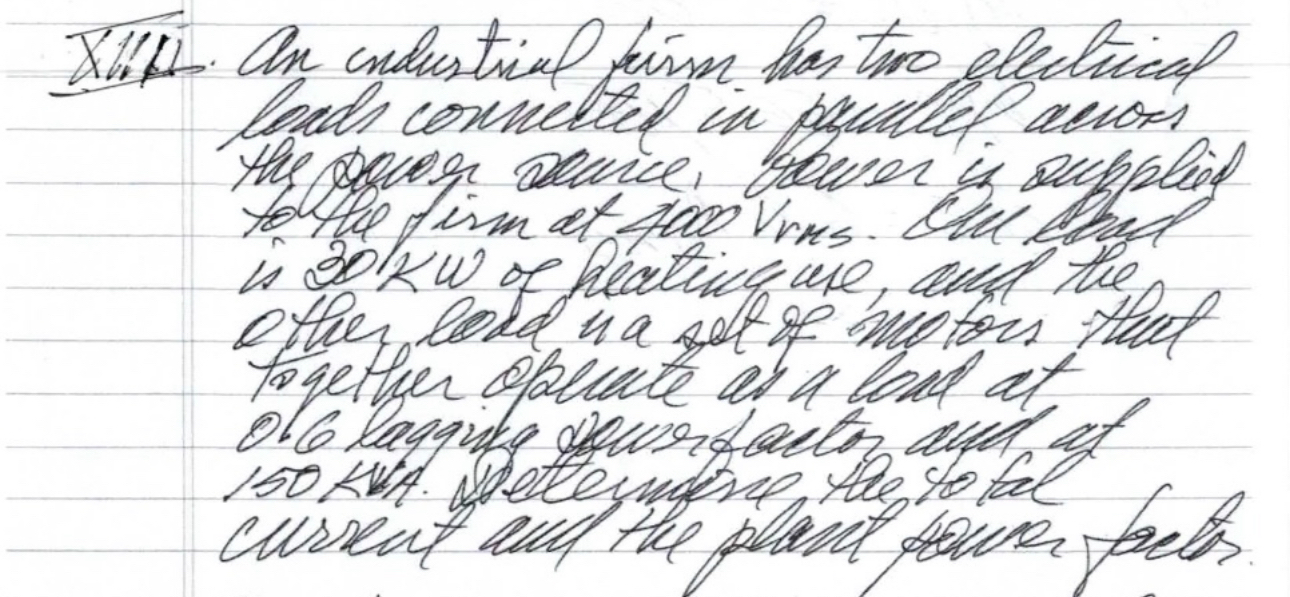 XVIII. An industrial firm has two electrical
loads connected in parallel across
the power source. Power is supplied
to the firm at 4000 Vrms. One load
is 30 KW of heating use, and the
other load is a set of motors that
together operate as a load at
0.6 lagging power factor and at
150 KVA. Determine the total
current and the plant power factor.